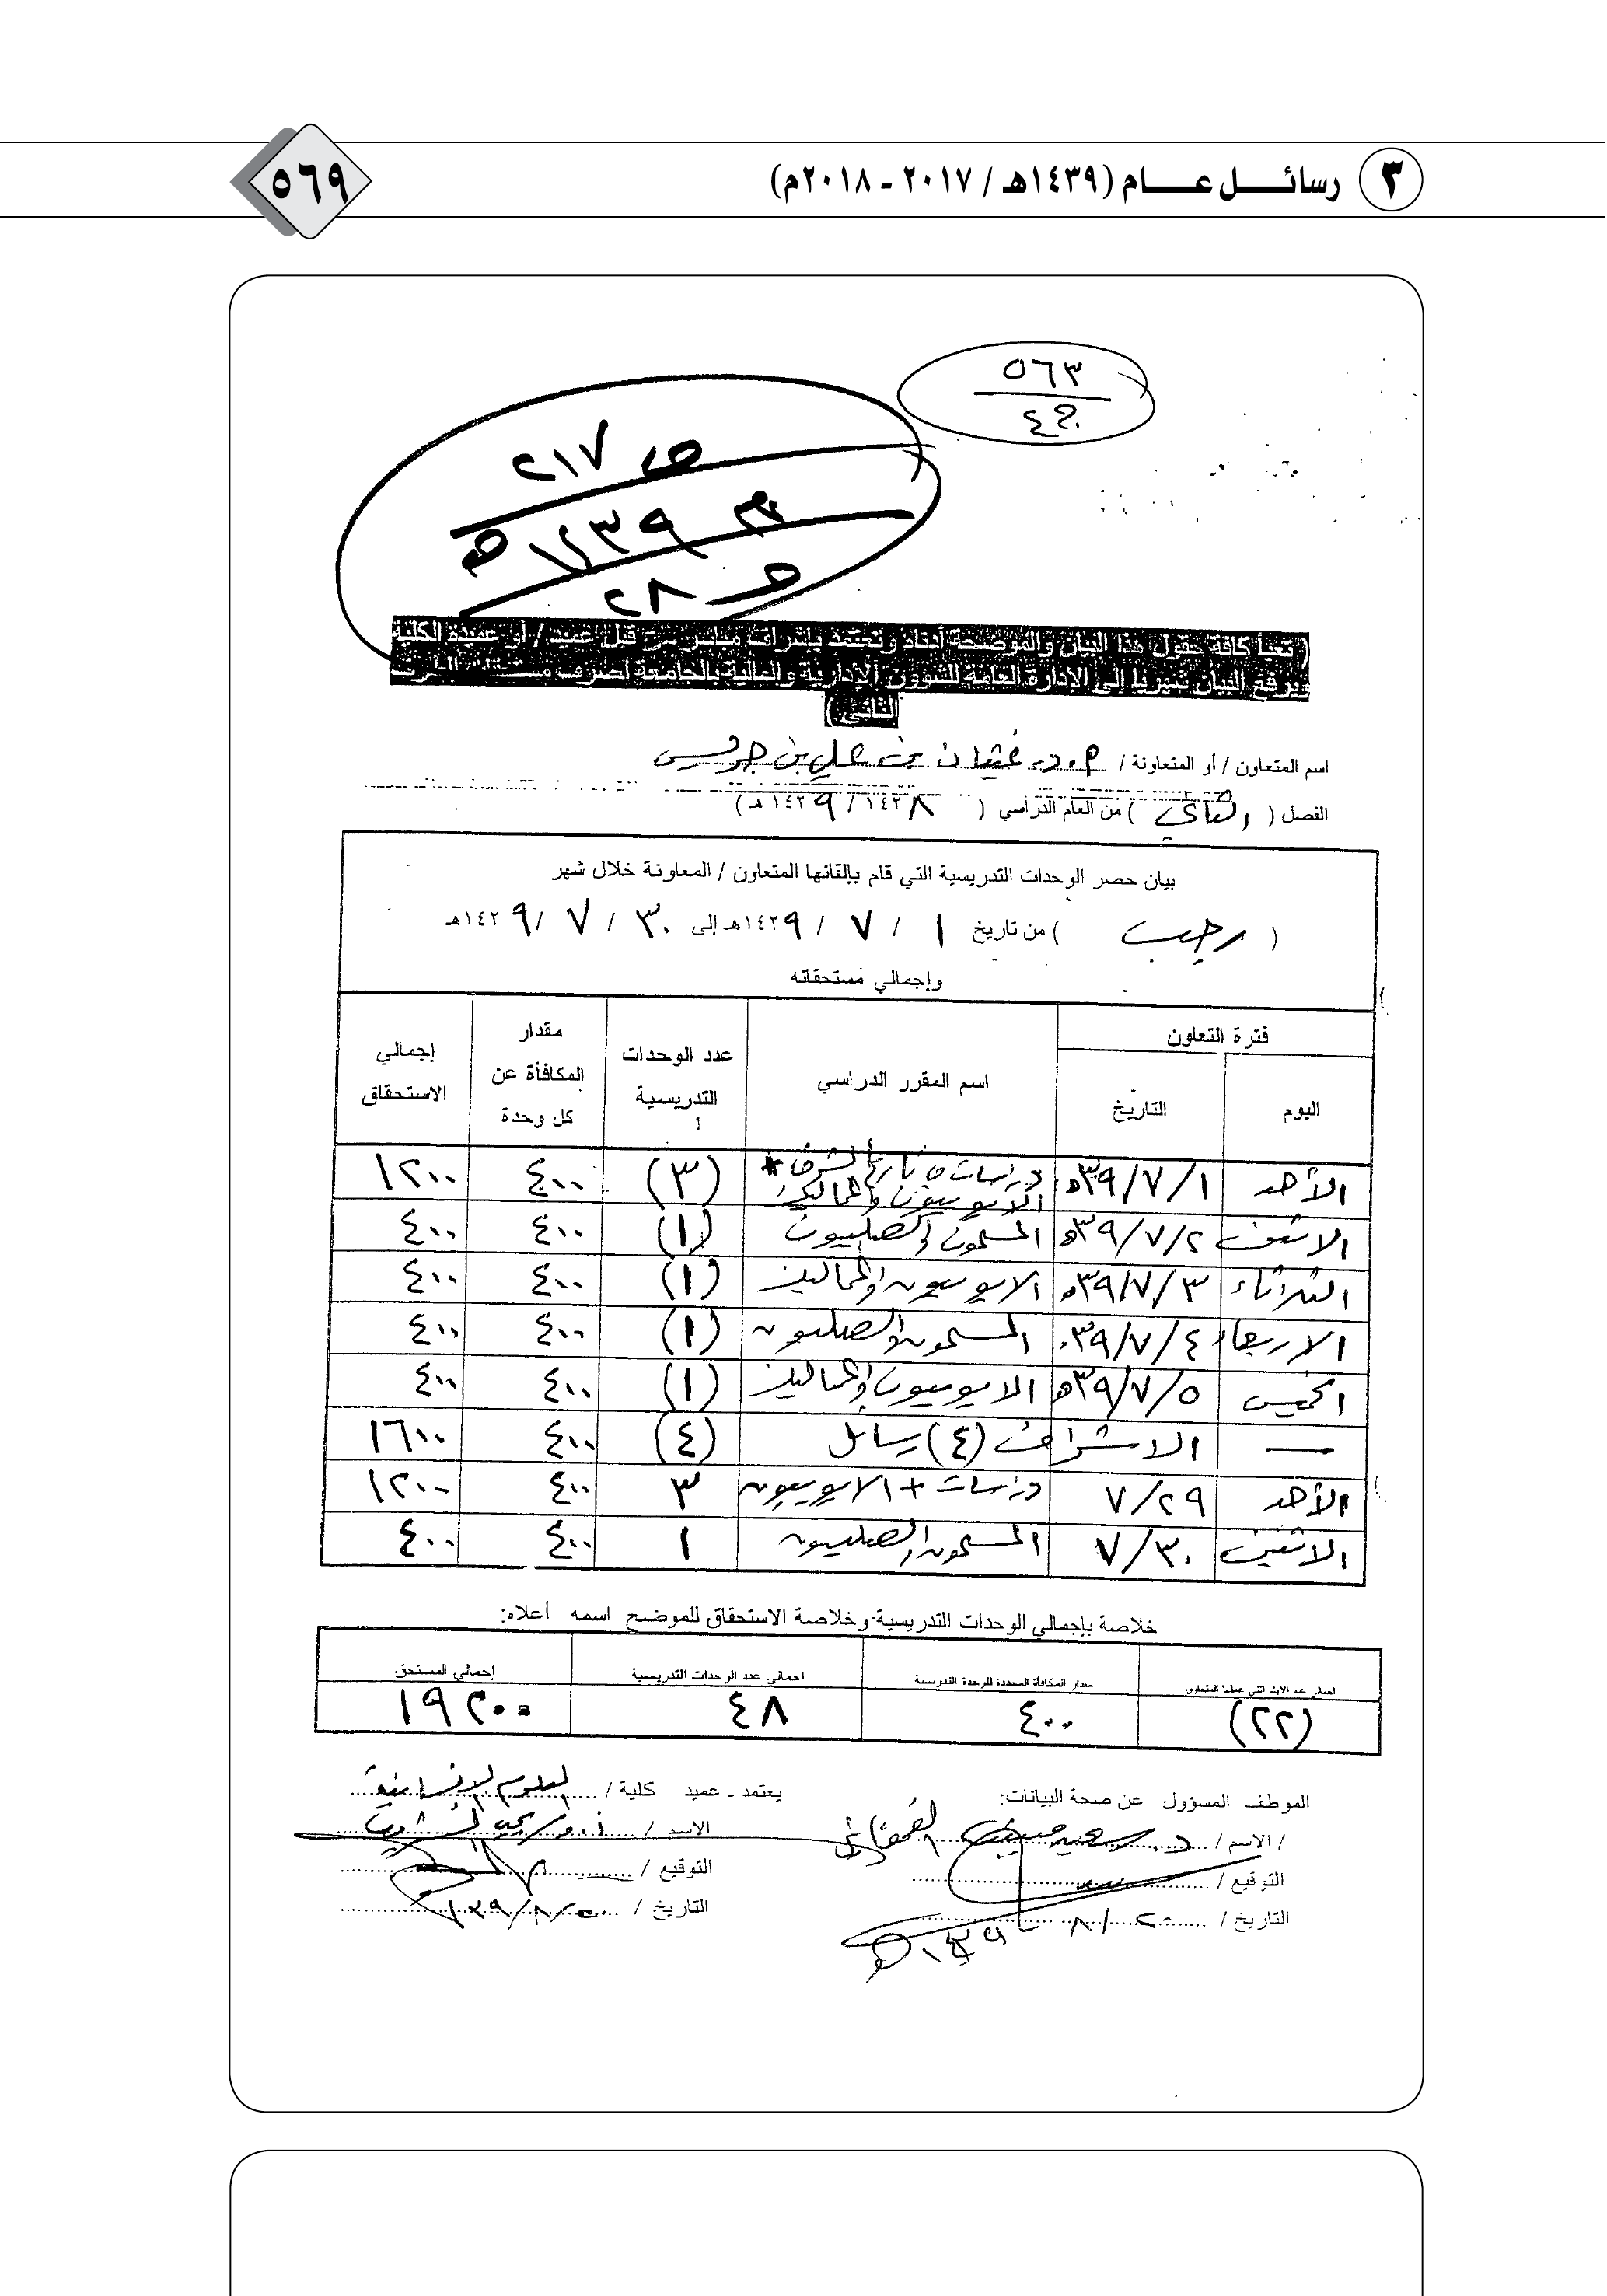 ٣ رسائل عام (١٤٣٩هـ / ٢٠١٧ - ٢٠١٨م)
٥٦٩
٥٦٣
ص ٢١٧
١٤٣٩هـ
٢٨
(تعبأ كافة حقول هذا البيان والموضحة أدناه وتعتمد بإشراف مباشر من قبل عميد / أو عميدة الكلية
ويرفع البيان شهرياً إلى الإدارة العامة للشؤون الإدارية والمالية بالجامعة لصرف مستحقات
اسم المتعاون / أو المتعاونة / أ.د. غيثان بن علي بن جريس
الفصل ( الثاني ) من العام الدراسي ( ١٤٣٨ / ١٤٣٩هـ)
بيان حصر الوحدات التدريسية التي قام بإلقائها المتعاون / المعاونة خلال شهر
( رجب ) من تاريخ ١ / ٧ / ١٤٣٩هـ إلى ٣٠ / ٧ / ١٤٣٩هـ
وإجمالي مستحقاته
فترة التعاون
اليوم التاريخ اسم المقرر الدراسي عدد الوحدات التدريسية مقدار المكافأة عن كل وحدة إجمالي الاستحقاق
الأحد ٣٩/٧/١هـ دراسات في تاريخ المشرق + الأيوبيون والمماليك (٣) ٤٠٠ ١٢٠٠
الاثنين ٣٩/٧/٢هـ المسلمون والصليبيون (١) ٤٠٠ ٤٠٠
الثلاثاء ٣٩/٧/٣هـ الايوبيون والمماليك (١) ٤٠٠ ٤٠٠
الاربعاء ٣٩/٧/٤هـ المسلمون والصليبيون (١) ٤٠٠ ٤٠٠
الخميس ٣٩/٧/٥هـ الايوبيون والمماليك (١) ٤٠٠ ٤٠٠
— الاشراف (٤) رسائل (٤) ٤٠٠ ١٦٠٠
الأحد ٧/٢٩ دراسات + الايوبيون ٣ ٤٠٠ ١٢٠٠
الاثنين ٧/٣٠ المسلمون والصليبيون ١ ٤٠٠ ٤٠٠
خلاصة بإجمالي الوحدات التدريسية وخلاصة الاستحقاق للموضح اسمه أعلاه:
مقدار المكافأة المحددة للوحدة التدريسية اجمالي عدد الوحدات التدريسية إجمالي المستحق
(٢٢) ٤٠٠ ٤٨ ١٩٢٠٠
الموظف المسؤول عن صحة البيانات: يعتمد - عميد كلية / العلوم الإنسانية
/ الاسم / د. سعيد القحطاني الاسم / د. يحيى الشريف
التوقيع / التوقيع /
التاريخ / ٢٠ / ٨ / ١٤٣٩هـ التاريخ /